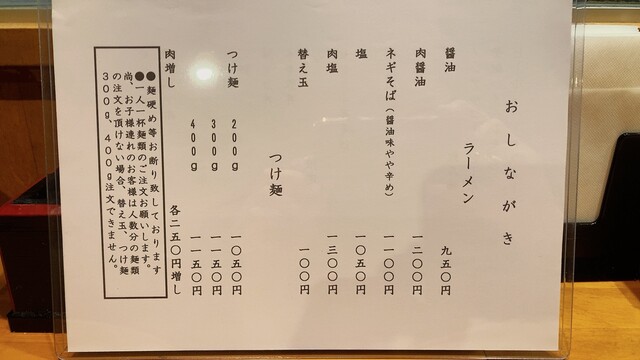 おしながき
ラーメン
醤油 九五〇円
肉醤油 一二〇〇円
ネギそば（醤油味やや辛め） 一一〇〇円
塩 一〇五〇円
肉塩 一三〇〇円
替え玉 一〇〇円
つけ麺
つけ麺 200g 一〇五〇円
300g 一一五〇円
400g 一一五〇円
肉増し 各二五〇円増し
●麺硬め等お断り致しております
●一人一杯麺類のご注文お願いします。
尚、お子様連れのお客様は人数分の麺類
の注文を頂けない場合、替え玉、つけ麺
300g、400g注文できません。